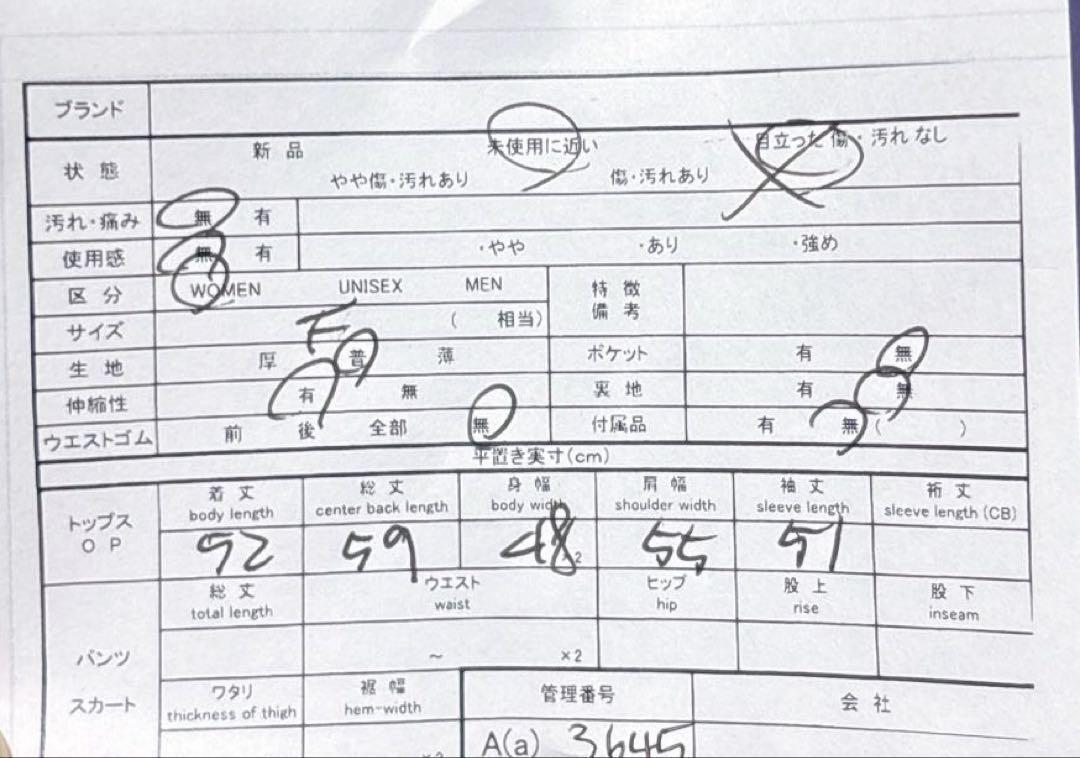 ブランド
状態 新品 未使用に近い 目立った傷・汚れなし
やや傷・汚れあり 傷・汚れあり
汚れ・痛み 無 有
使用感 無 有 ・やや ・あり ・強め
区分 WOMEN UNISEX MEN 特徴備考
サイズ F ( 相当)
生地 厚 普 薄 ポケット 有 無
伸縮性 有 無 裏地 有 無
ウエストゴム 前 後 全部 無 付属品 有 無( )
平置き実寸(cm)
トップス OP
着丈 総丈 身幅 肩幅 袖丈 裄丈
body length center back length body width shoulder width sleeve length sleeve length (CB)
52 59 48 ×2 55 51
総丈 ウエスト ヒップ 股上 股下
total length waist hip rise inseam
パンツ スカート
~ ×2
ワタリ 裾幅 管理番号 会社
thickness of thigh hem-width
×2 A(a) 3645